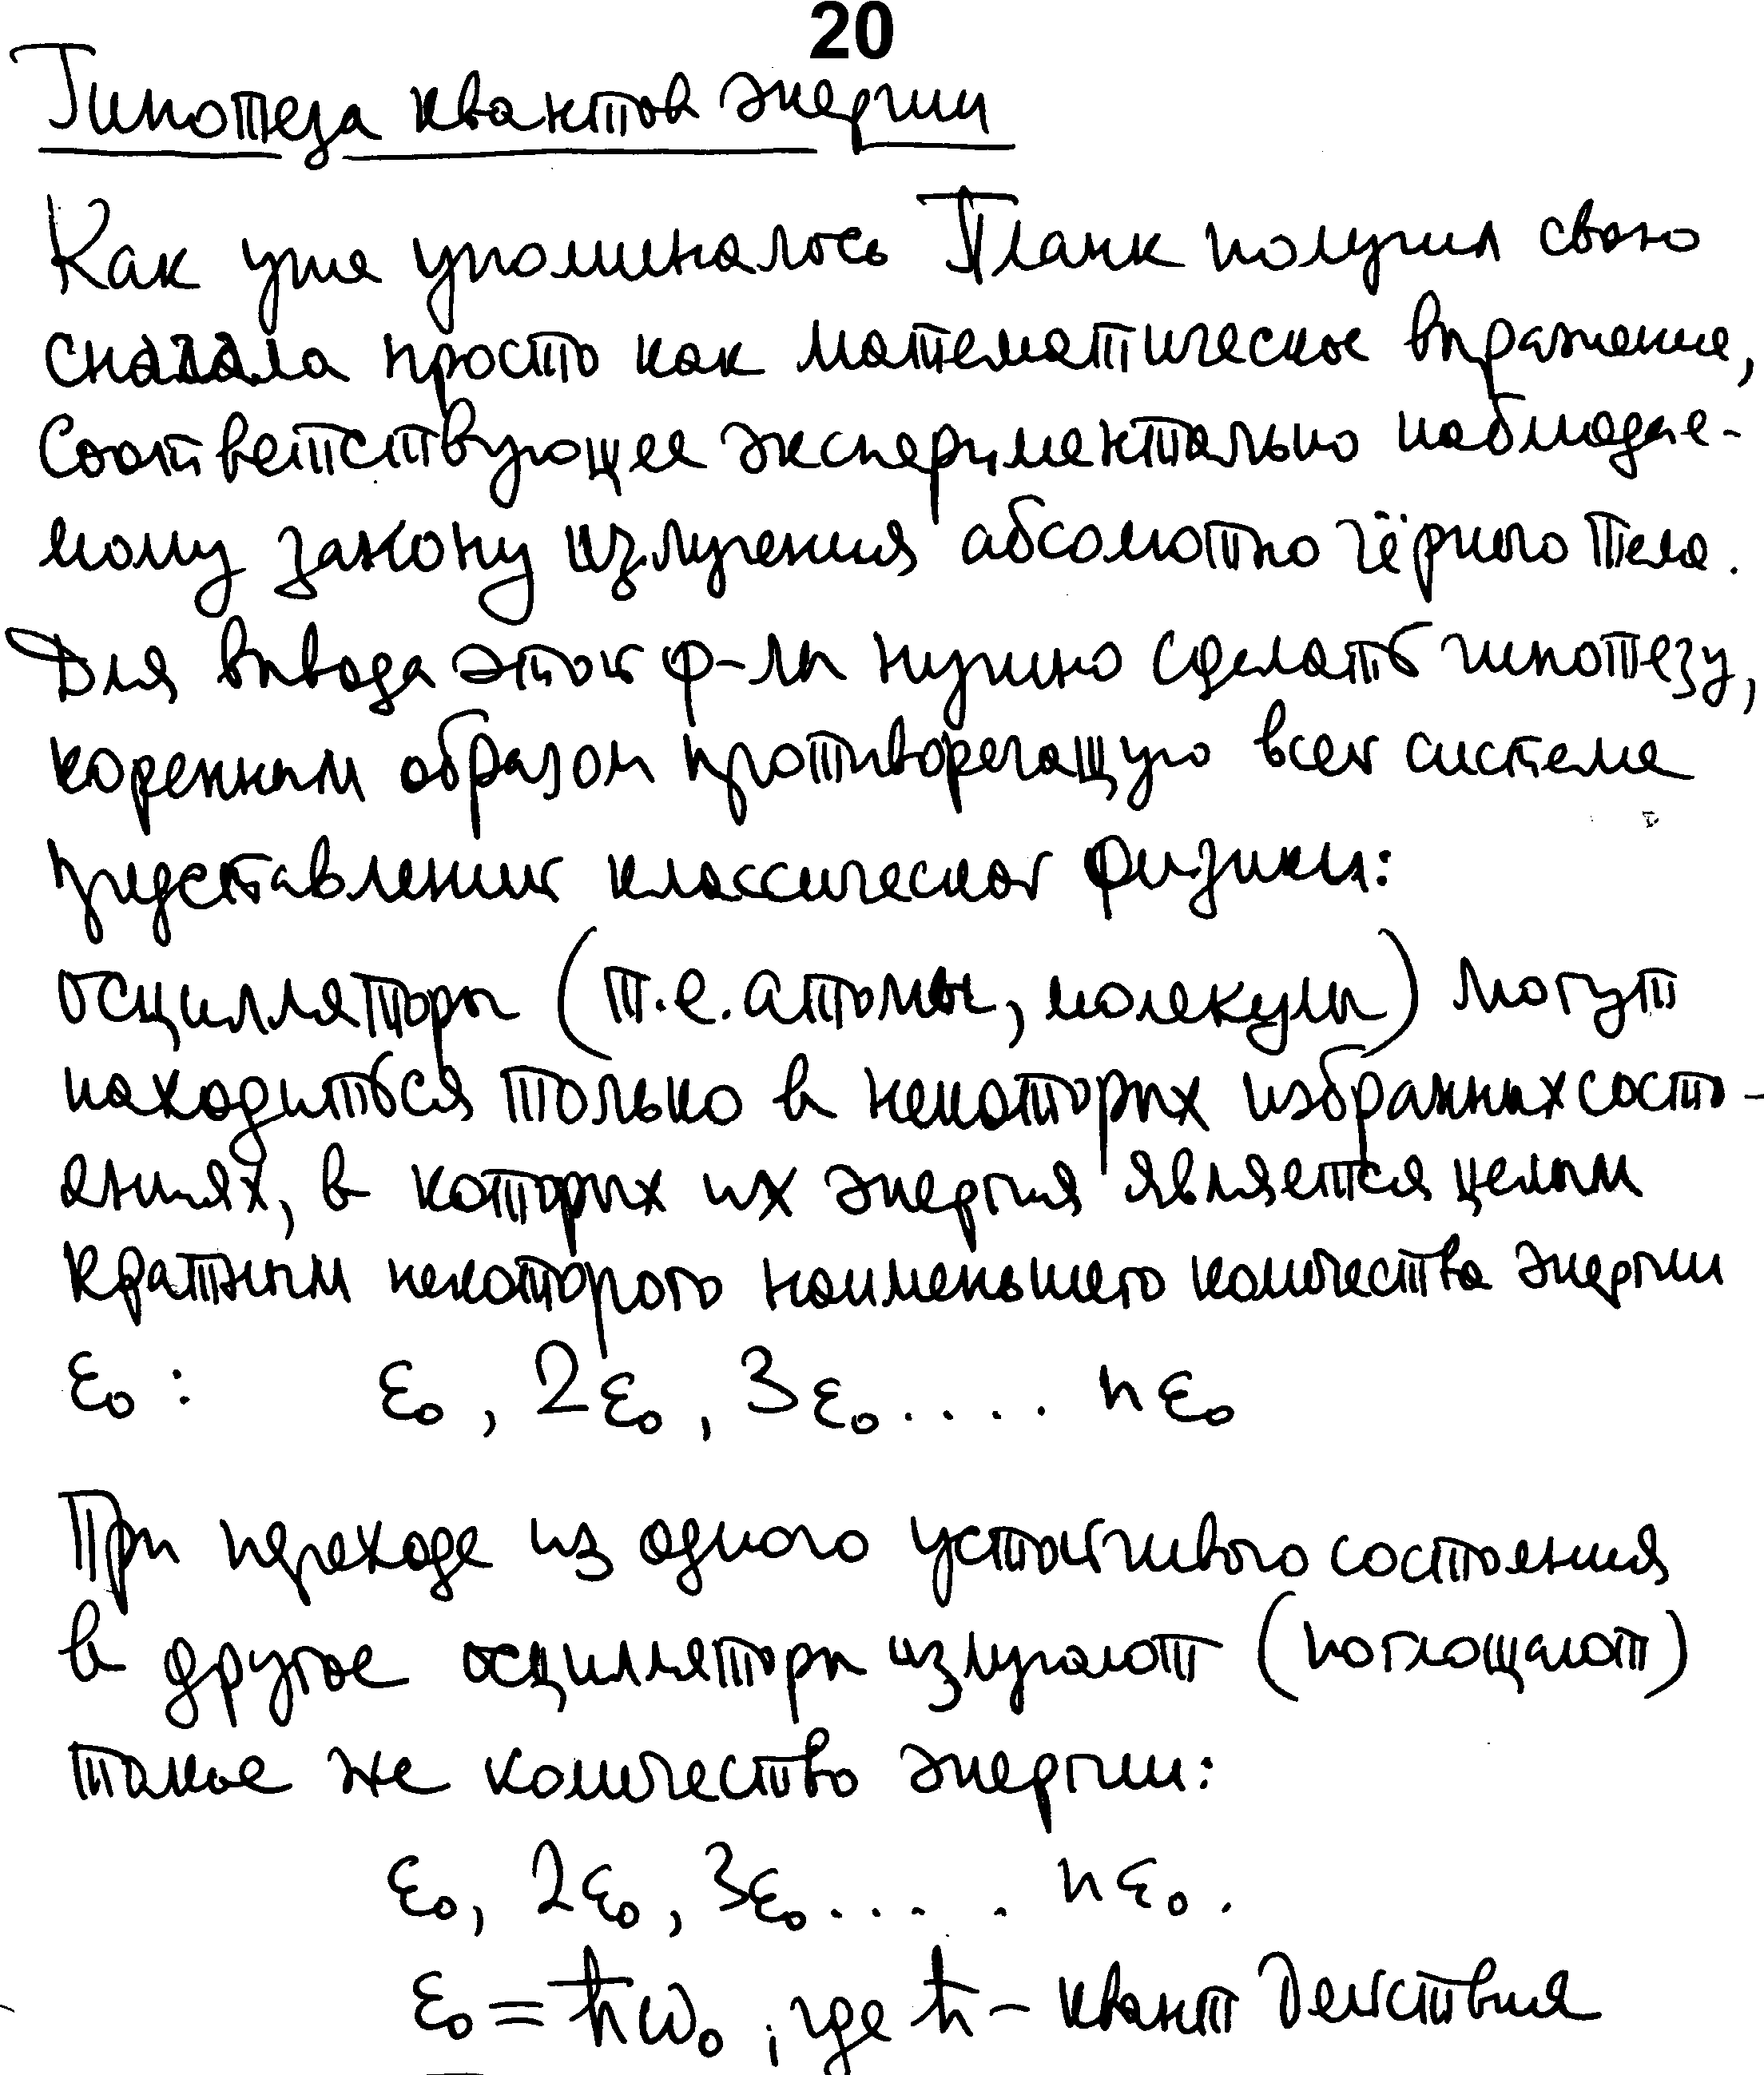 20
Гипотеза квантов энергии
Как уже упоминалось Планк получил свою
сначала просто как математическое выражение,
соответствующее экспериментально наблюдае-
мому закону излучения абсолютно чёрного тела.
Для вывода этой ф-лы нужно сделать гипотезу,
коренным образом противоречащую всей системе
представлений классической физики:
осцилляторы (т.е. атомы, молекулы) могут
находиться только в некоторых избранных состо-
яниях, в которых их энергия является целым
кратным некоторого наименьшего количества энергии
ε₀ : ε₀ , 2ε₀ , 3ε₀ .... nε₀
При переходе из одного устойчивого состояния
в другое осцилляторы излучают (поглощают)
такое же количество энергии:
ε₀, 2ε₀ , 3ε₀ ..... nε₀ .
ε₀ = ħω₀ , где ħ – квант действия